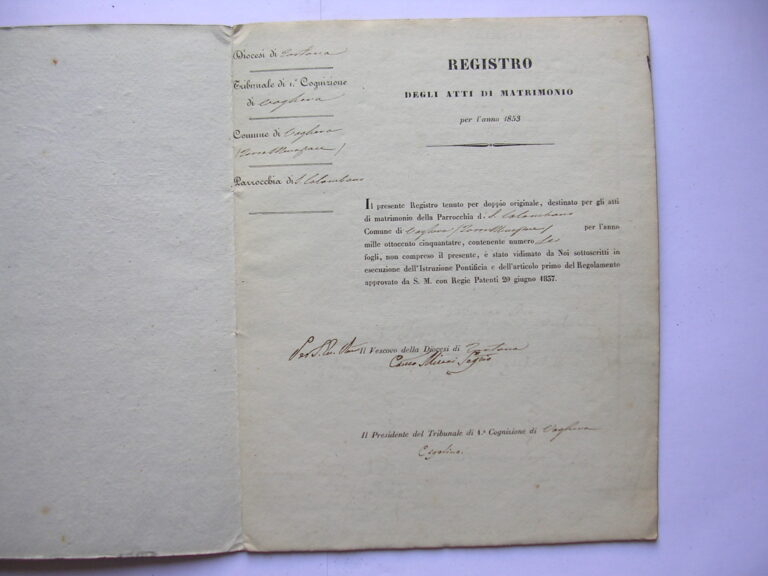 Diocesi di Tortona
Tribunale di 1.ª Cognizione
di Voghera
Comune di Voghera
(Torre Menapace)
Parrocchia di S. Colombano
REGISTRO
DEGLI ATTI DI MATRIMONIO
per l'anno 1853
Il presente Registro tenuto per doppio originale, destinato per gli atti
di matrimonio della Parrocchia d. S. Colombano
Comune di Voghera (Torre Menapace) per l'anno
mille ottocento cinquantatre, contenente numero Sei
fogli, non compreso il presente, è stato vidimato da Noi sottoscritti in
esecuzione dell'Istruzione Pontificia e dell'articolo primo del Regolamento
approvato da S. M. con Regie Patenti 20 giugno 1837.
Il Vescovo della Diocesi di Tortona
Il Presidente del Tribunale di 1.ª Cognizione di Voghera